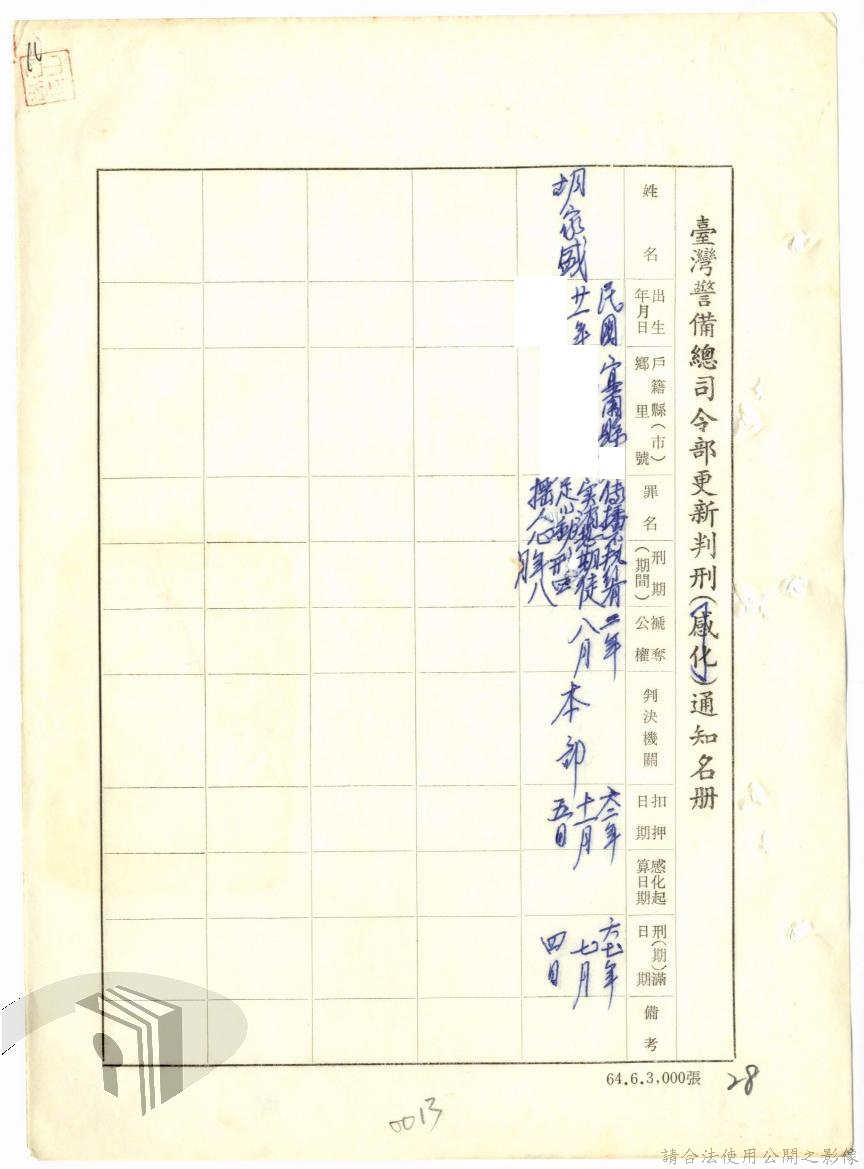 臺灣警備總司令部更新判刑(感化)通知名册
姓名
出生
年月日
戶籍縣(市)
鄉里號
罪名
刑期
(期間)
褫奪
公權
判決機關
扣押
日期
感化起
算日期
刑(期)滿
日期
備考
胡家盛
民國
年
縣
傳播不
實消息
足以動
搖人心
有期徒
刑四年
八月
二年
八月
本部
六二年
十一月
五日
六七年
七月
四日
64.6.3,000張
28
0013
請合法使用公開之影像